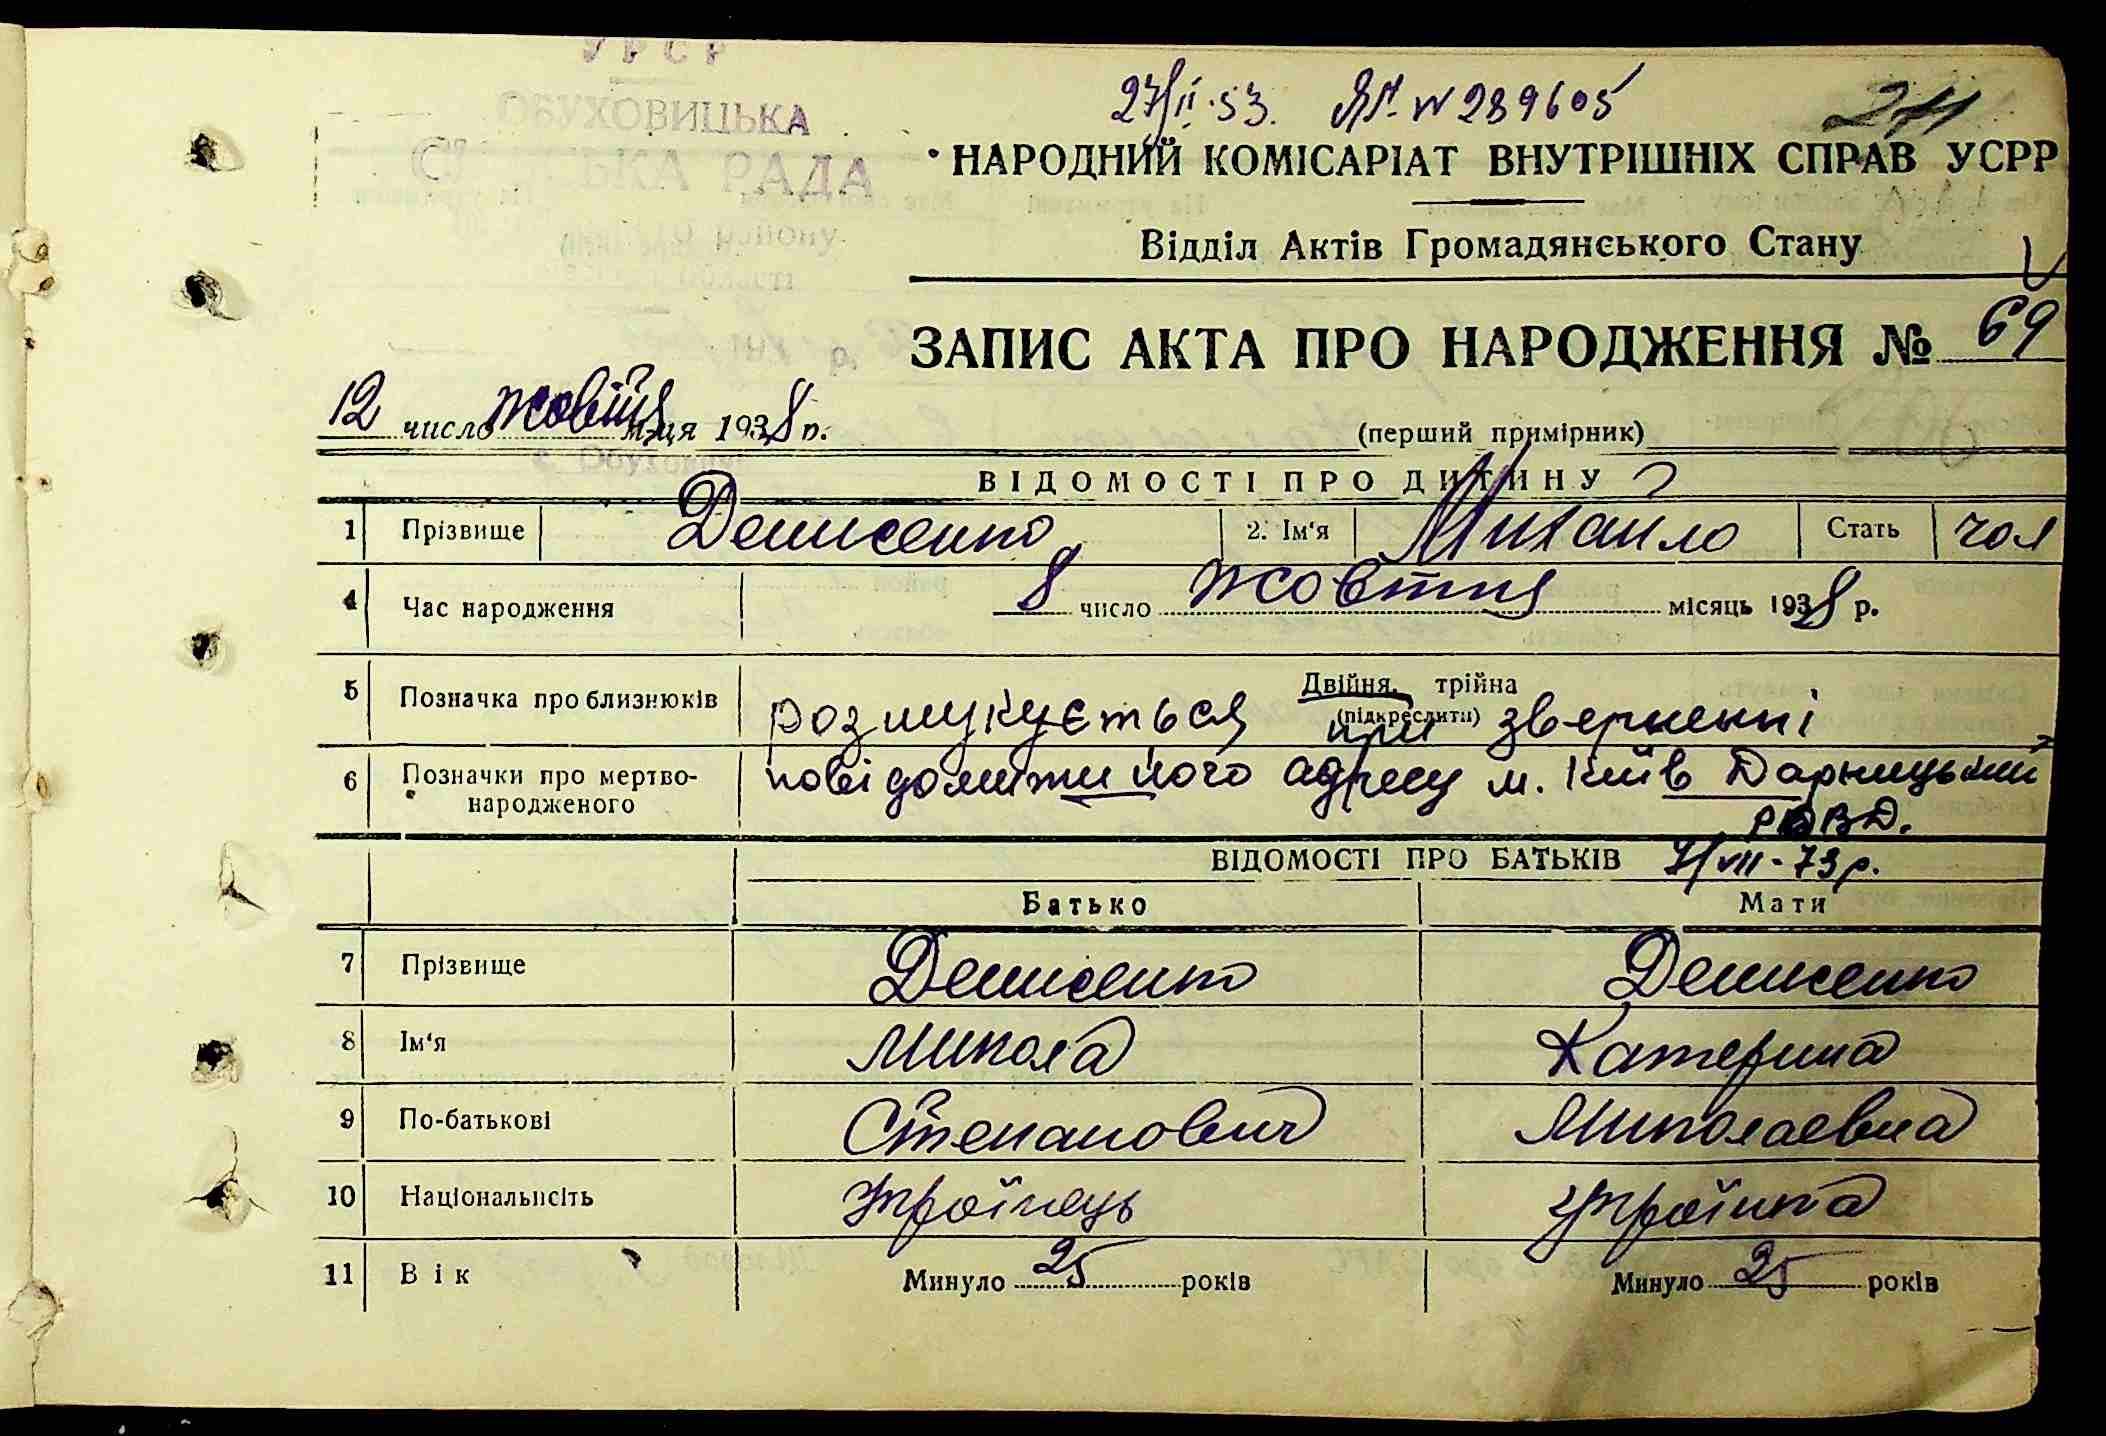 УРСР
ОБУХОВИЦЬКА
РАДА
району
області
с. Обуховичі
27/II.53. ЯЛ. N 289605
НАРОДНИЙ КОМІСАРІАТ ВНУТРІШНІХ СПРАВ УСРР
Відділ Актів Громадянського Стану
ЗАПИС АКТА ПРО НАРОДЖЕННЯ № 69
12 число жовтня м-ця 1938 р.
(перший примірник)
ВІДОМОСТІ ПРО ДИТИНУ
1 Прізвище Денисенко 2. Ім'я Михайло Стать чол
4 Час народження 8 число жовтня місяць 1938 р.
5 Позначка про близнюків Двійня, трійна
(підкреслити)
розшукується при зверненні
6 Позначки про мертво-
народженого
повідомити його адресу м. Київ Дарницький
РОВД.
ВІДОМОСТІ ПРО БАТЬКІВ /VII-73 р.
Батько Мати
7 Прізвище Денисенко Денисенко
8 Ім'я Микола Катерина
9 По-батькові Степанович Миколаевна
10 Національність Українець Українка
11 Вік Минуло 25 років Минуло 25 років